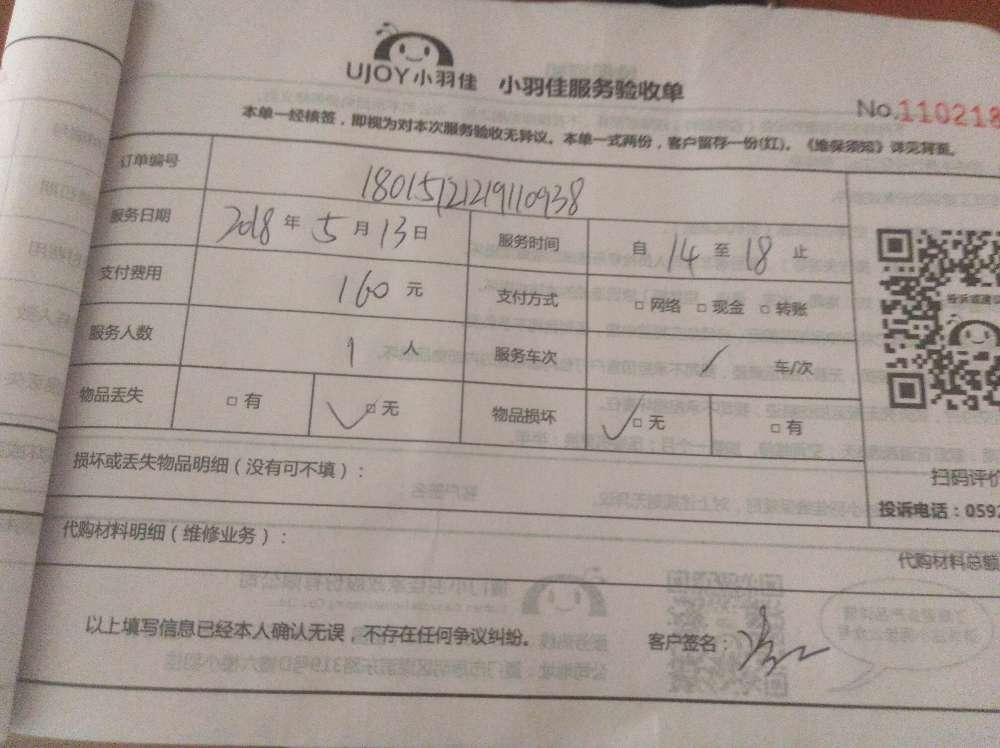 UJOY小羽佳 小羽佳服务验收单
No.110218
本单一经核签，即视为对本次服务验收无异议。本单一式两份，客户留存一份(红)。《维保须知》详见背面。
订单编号 18015121219110938
服务日期 2018 年 5 月 13 日 服务时间 自 14 至 18 止
支付费用 160 元 支付方式 □ 网络 □ 现金 □ 转账
服务人数 1 人 服务车次 车/次
物品丢失 □ 有 □ 无 物品损坏 □ 无 □ 有
损坏或丢失物品明细（没有可不填）：
扫码评价
投诉电话：0592
代购材料明细（维修业务）：
代购材料总额
以上填写信息已经本人确认无误，不存在任何争议纠纷。 客户签名：